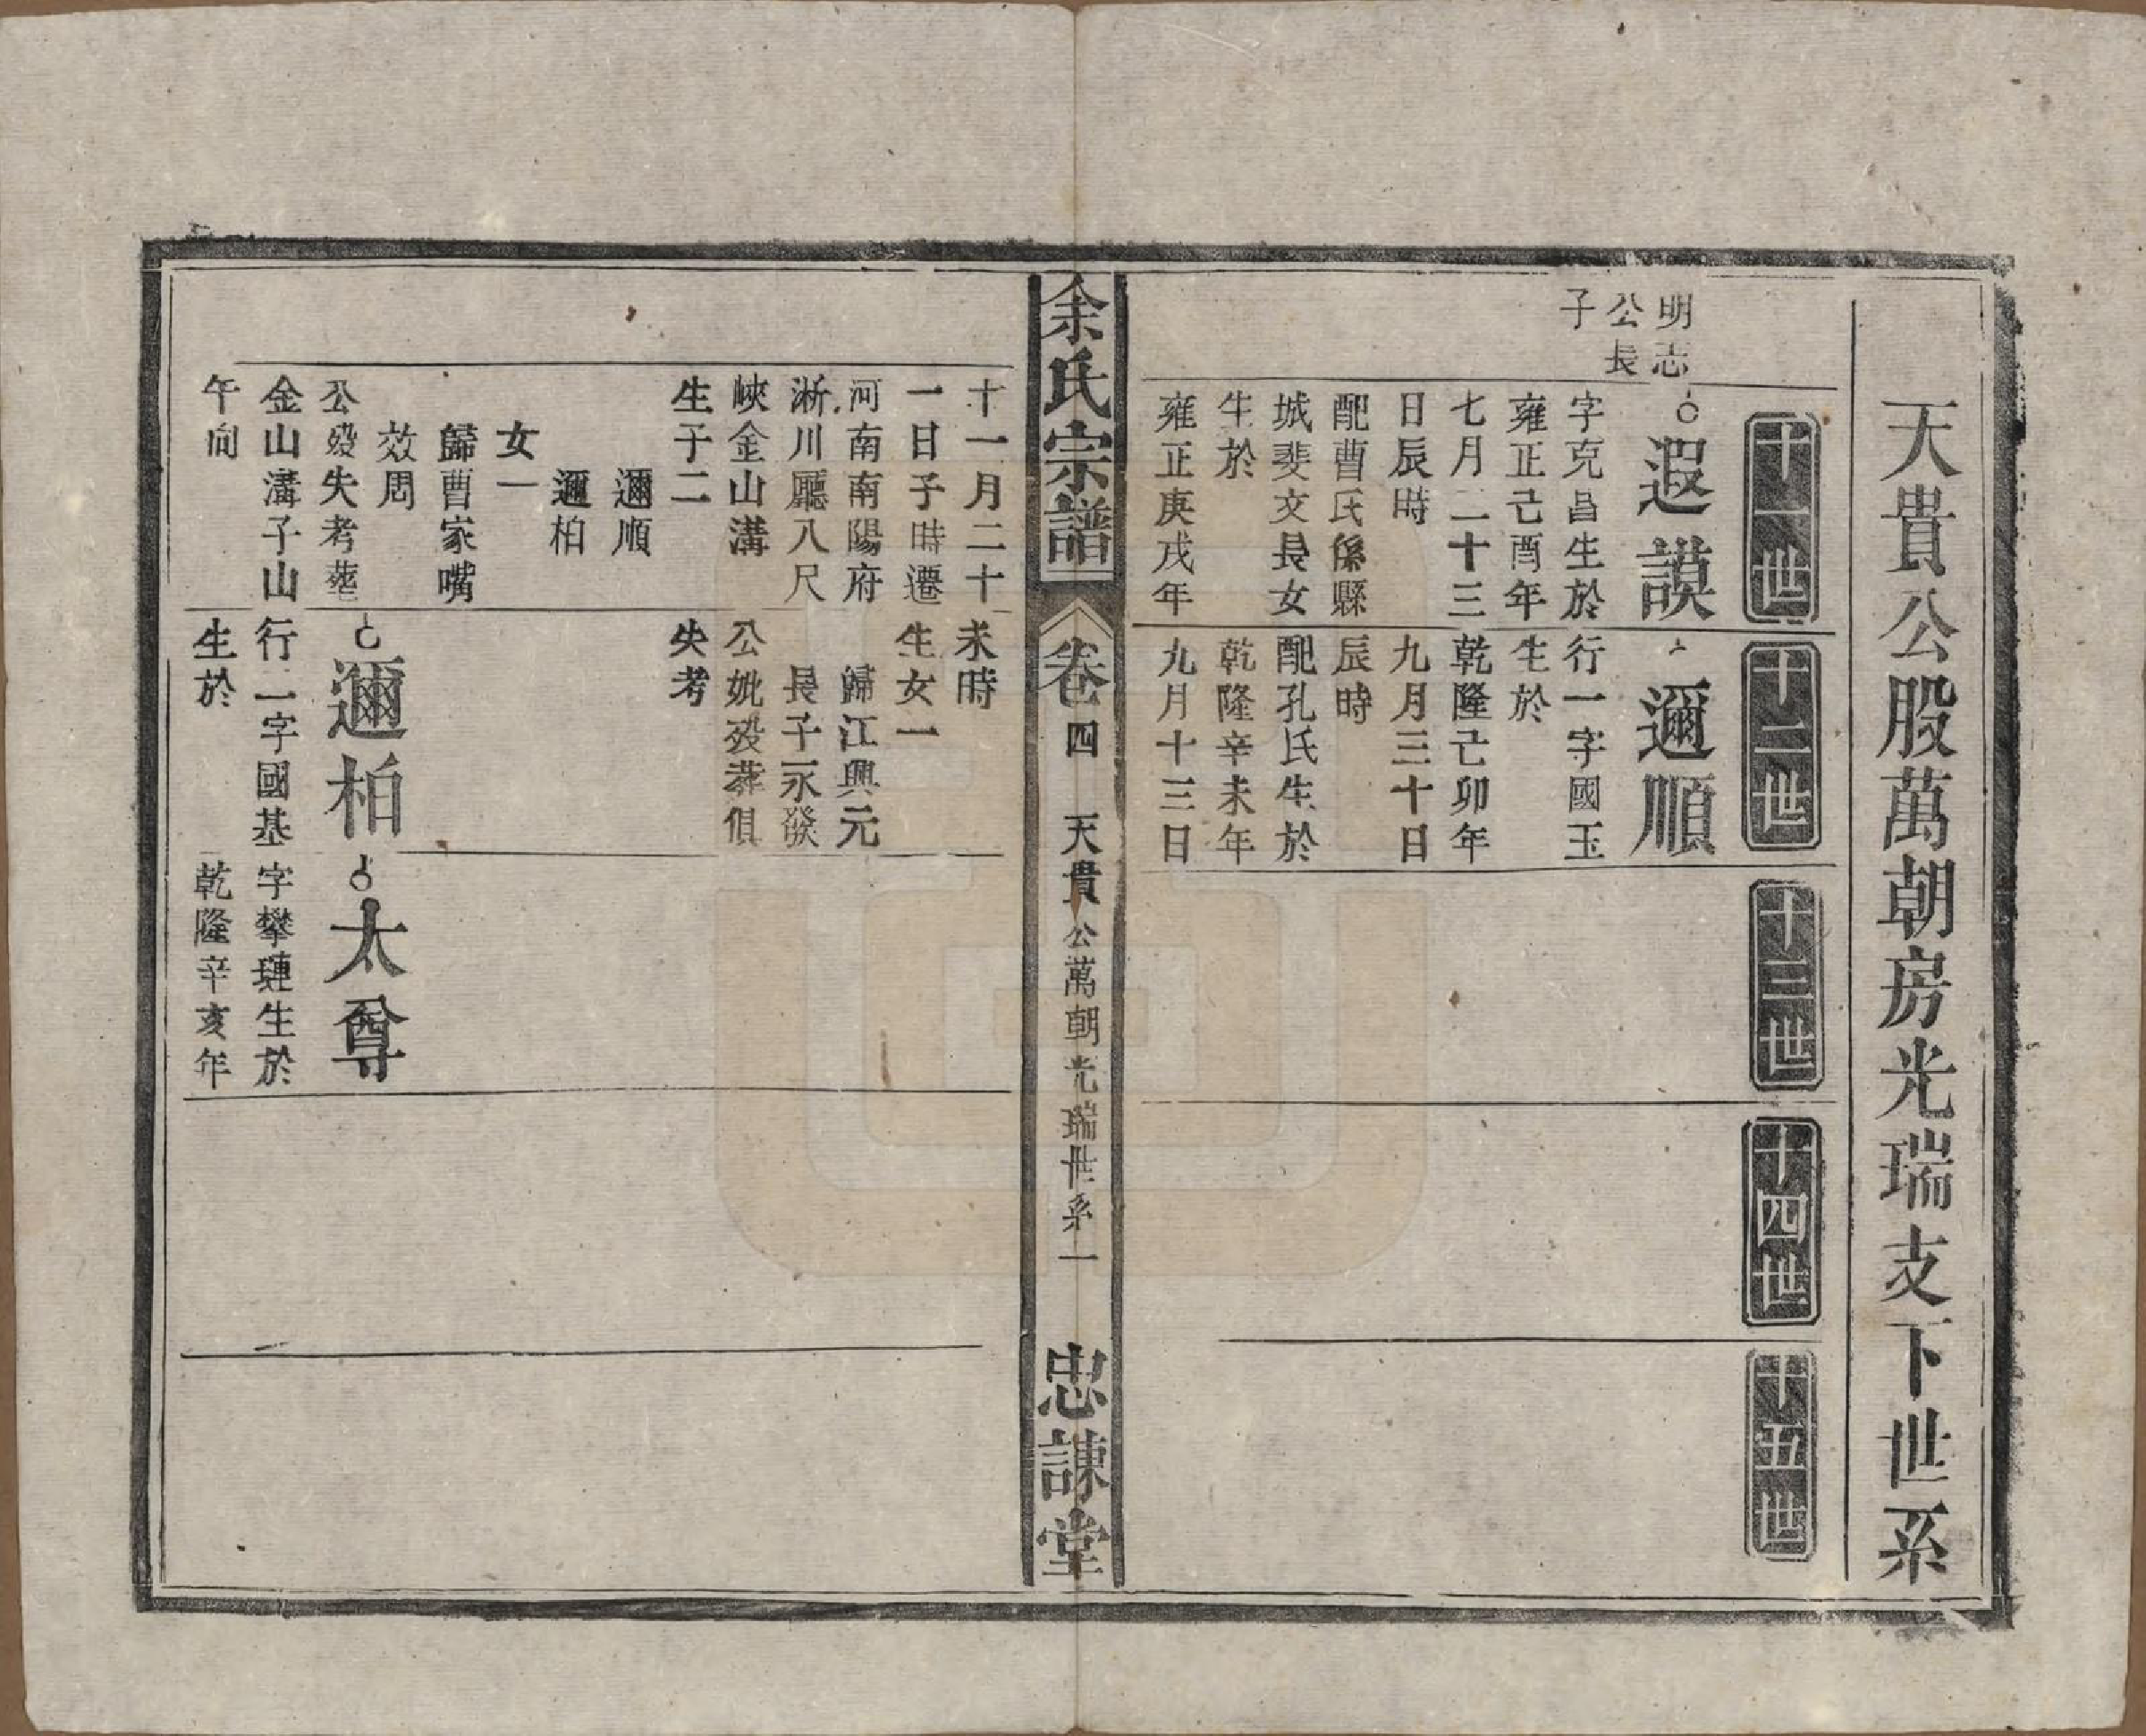 天貴公股萬朝房光瑞支下世系
十一世
十二世
十三世
十四世
十五世
明志
公長
子
遐謨
字克昌生於
雍正己酉年
七月二十三
日辰時
配曹氏係縣
城斐文長女
生於
雍正庚戌年
邇順
行一字國玉
生於
乾隆己卯年
九月三十日
辰時
配孔氏生於
乾隆辛未年
九月十三日
余氏宗譜
卷四
天貴公萬朝光瑞世系一
忠諫堂
十一月二十
一日子時遷
河南南陽府
淅川廳八尺
峽金山溝
生子二
邇順
邇柏
女一
歸曹家嘴
效周
公歿失考葬
金山溝子山
午向
未時
生女一
歸江興元
長子永發
公妣歿葬俱
失考
邇柏
行二字國基
生於
太尊
字攀璉生於
乾隆辛亥年